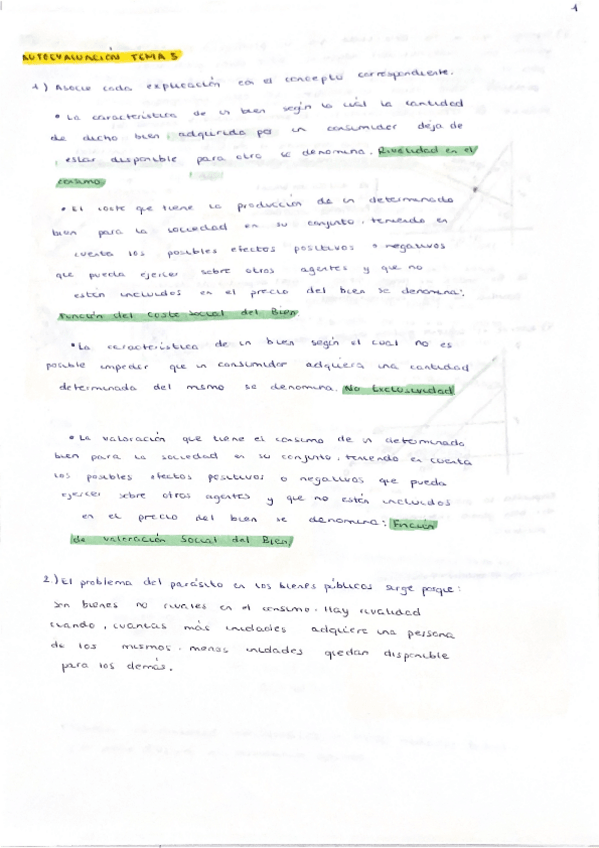 1
AUTOEVALUACIÓN TEMA 5
1) Asocie cada explicación con el concepto correspondiente.
• La característica de un bien según la cuál la cantidad
de dicho bien adquirida por un consumidor deja de
estar disponible para otro se denomina. Rivalidad en el
consumo
• El coste que tiene la producción de un determinado
bien para la sociedad en su conjunto, teniendo en
cuenta los posibles efectos positivos o negativos
que pueda ejercer sobre otros agentes y que no
estén incluidos en el precio del bien se denomina:
Función del Coste Social del Bien
• La característica de un buen según el cual no es
posible impedir que un consumidor adquiera una cantidad
determinada del mismo se denomina. No Exclusividad
• La valoración que tiene el consumo de un determinado
bien para la sociedad en su conjunto, teniendo en cuenta
los posibles efectos positivos o negativos que pueda
ejercer sobre otros agentes y que no estén incluidos
en el precio del bien se denomina: Función
de valoración Social del Bien
2) El problema del parásito en los bienes públicos surge porque:
son bienes no rivales en el consumo. Hay rivalidad
cuando, cuantas más unidades adquiere una persona
de los mismos, menos unidades quedan disponible
para los demás.